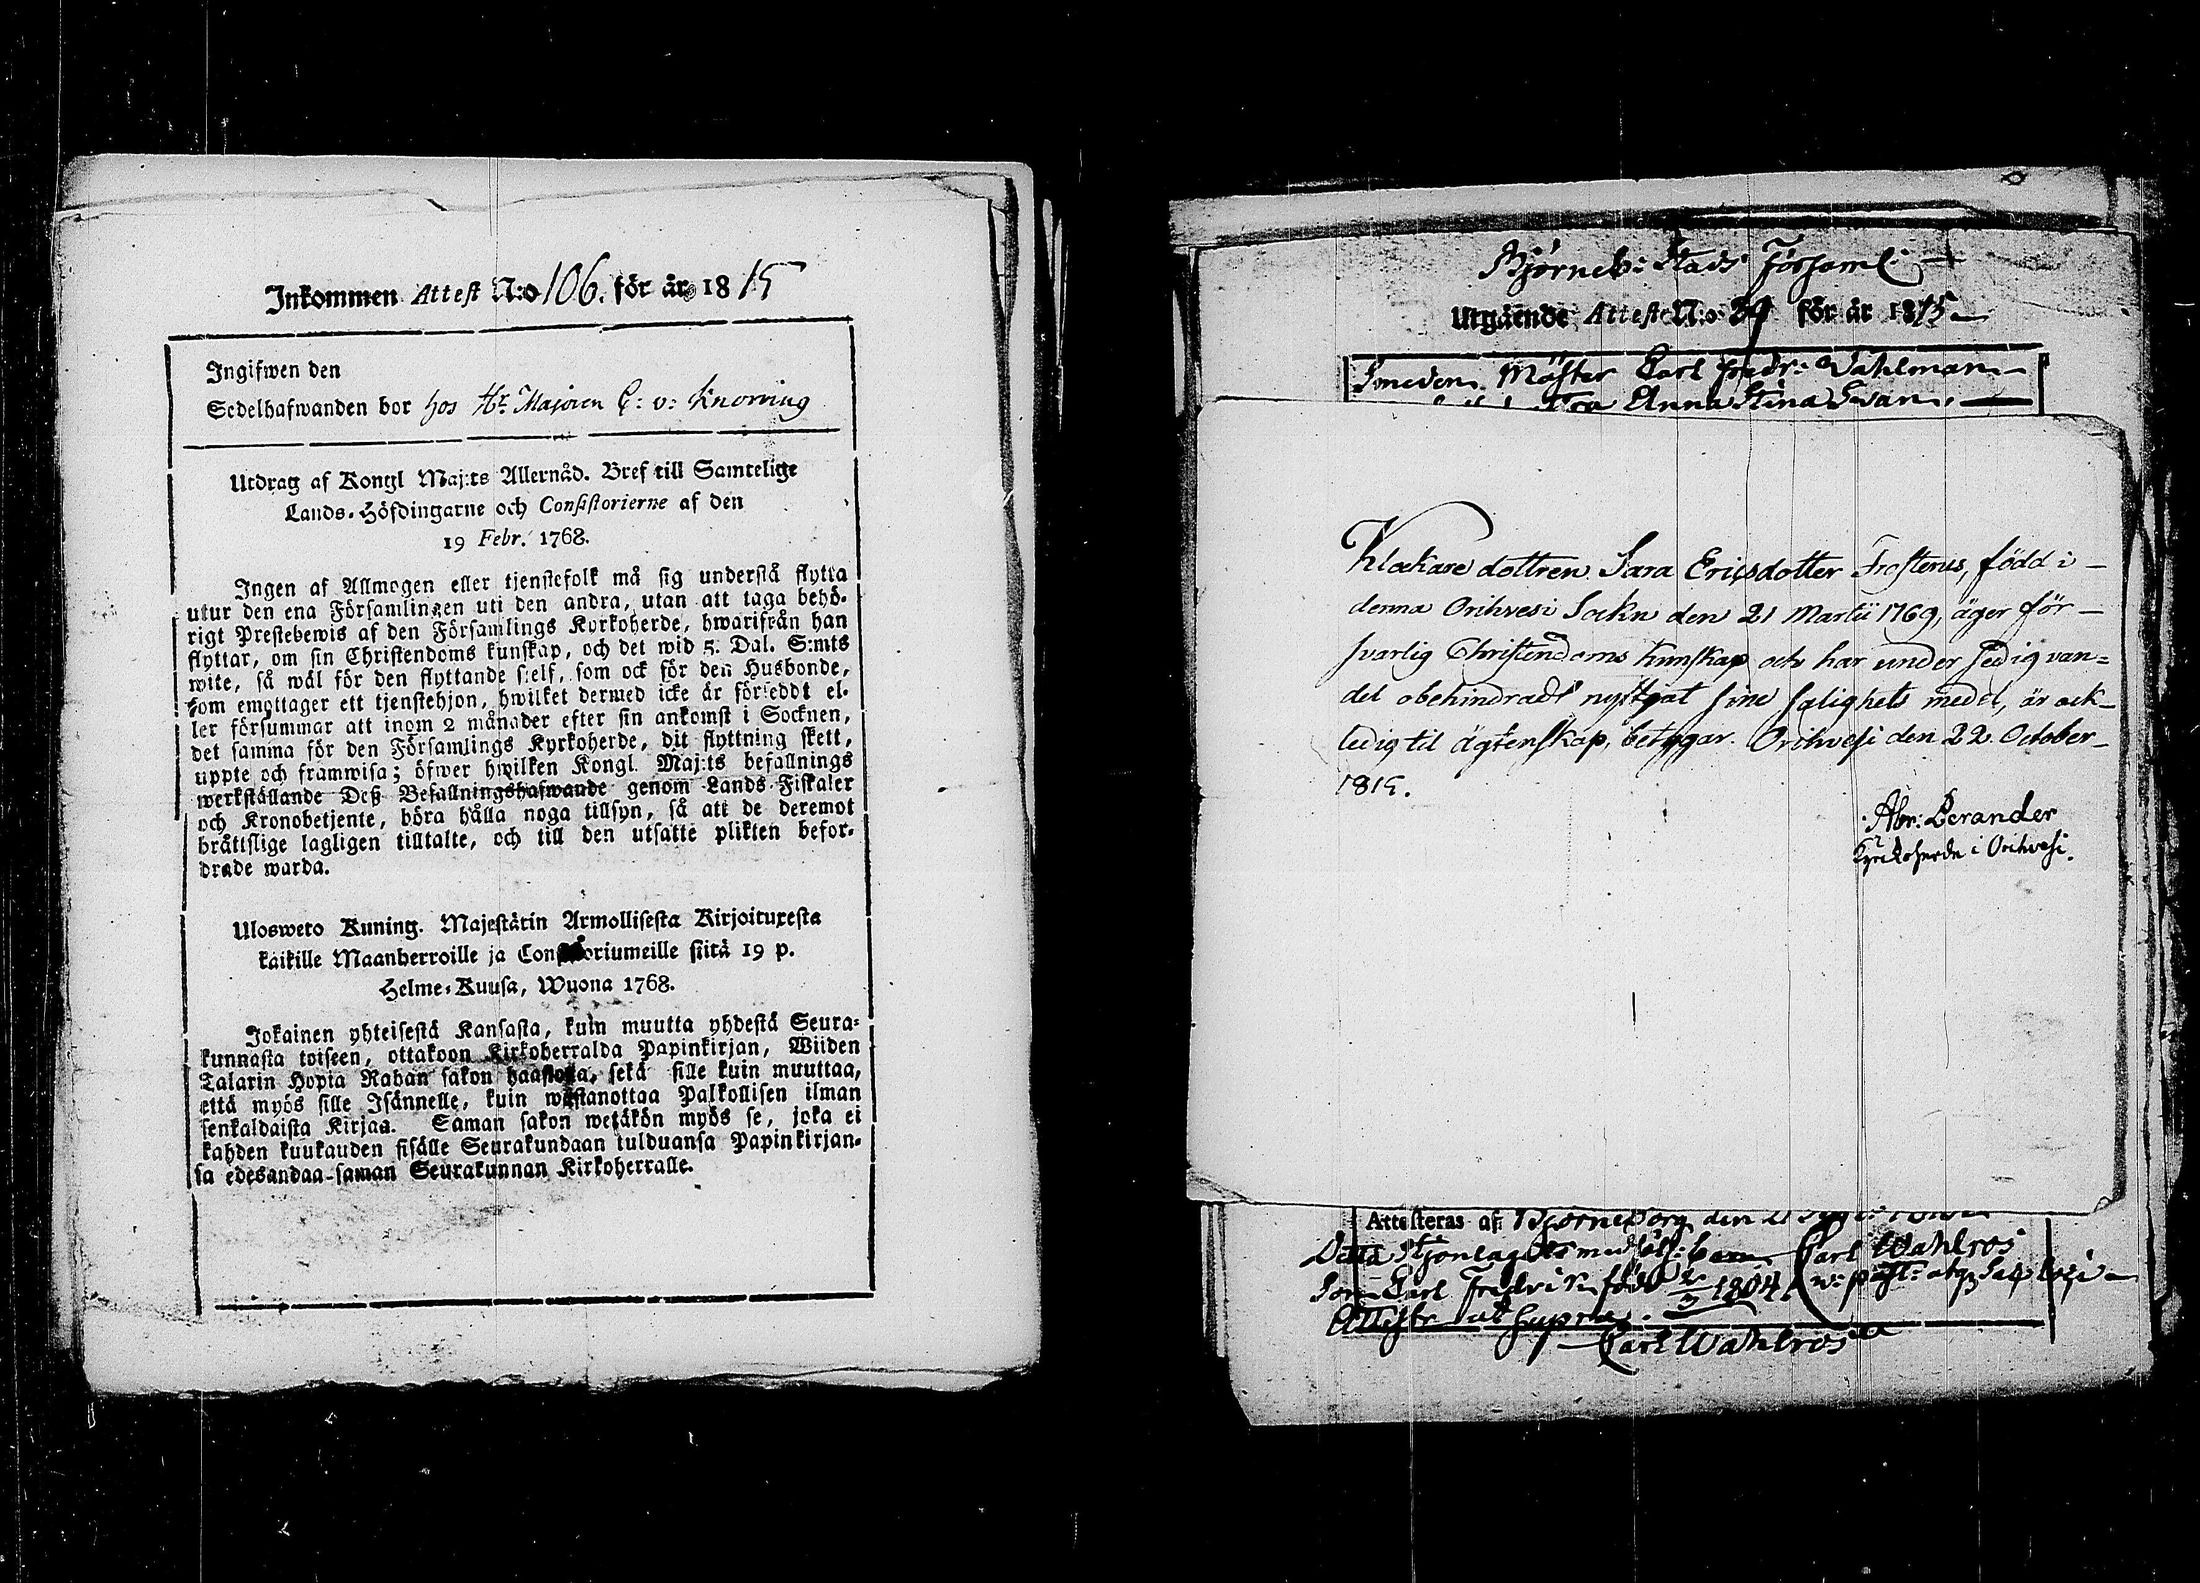 Inkommen Attest N:o 106. för år 1815
Ingifwen den
Sedelhafwanden bor hos Hr Majoren C: v: Knorring
Utdrag af Kongl Maj:ts Allernåd. Bref till Samtelige
Lands-Höfdingarne och Consistorierne af den
19 Febr. 1768.
Ingen af Allmogen eller tjenstefolk må sig understå flytta
utur den ena Församlingen uti den andra, utan att taga behö-
rigt Prestebewis af den Församlings Kyrkoherde, hwarifrån han
flyttar, om sin Christendoms kunskap, och det wid 5. Dal. S:mts
wite, så wäl för den flyttande sielf, som ock för den Husbonde,
som emottager ett tjenstehjon, hwilket dermed icke är försedt el-
ler försummar att inom 2 månader efter sin ankomst i Socknen,
det samma för den Församlings Kyrkoherde, dit flyttning skett,
uppte och framwisa; öfwer hwilken Kongl. Maj:ts befallnings
werkställande Deß Befallningshafwande genom Lands-Fiskaler
och Kronobetjente, böra hålla noga tillsyn, så att de deremot
bråttslige lagligen tilltalte, och till den utsatte plikten befor-
drade warda.
Ulosweto Kuning. Majestätin Armollisesta Kirjoituxesta
kaikille Maanherroille ja Consistoriumeille siitä 19 p.
Helme-Kuusa, Wuona 1768.
Jokainen yhteisestä Kansasta, kuin muutta yhdestä Seura-
kunnasta toiseen, ottakoon Kirkoherralda Papinkirjan, Wiiden
Talarin Hopia Rahan sakon haastolla, sekä sille kuin muuttaa,
että myös sille Isännelle, kuin wastanottaa Palkollisen ilman
senkaldaista Kirjaa. Saman sakon wetäkön myös se, joka ei
kahden kuukauden sisälle Seurakundaan tulduansa Papinkirjan-
sa edesandaa saman Seurakunnan Kirkoherralle.
Björneb: Stads Församl:
Utgående Attest N:o 39 för år 1815
Smeden Mäster Carl Fredr: Wahlman
Anna Stina Svan
Klockare dottren Sara Ericsdotter Frosterus, född i
denna Orihvesi Sockn den 21 Martii 1769, äger för-
svarlig Christendoms kunskap och har under sedig van=
del obehindradt nyttjat sine salighets medel, är ock
ledig til ägtenskap, betygar. Orihvesi den 22 October
1815.
Abr: Lerander
Kyrckoherde i Orihvesi.
Attesteras af: Björneborg den
Detta Hjonelag Carl Wahlros
Son Carl Fredrik född 2/3 1804
Attestr ut supra.
Carl Wahlros